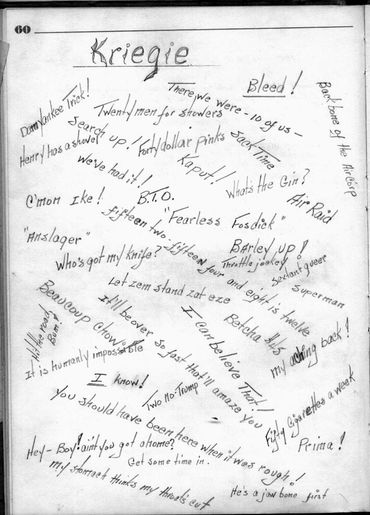 60
Kriegie
Bleed!
Damn Yankee Trick!
There we were - 10 of us -
Twenty men for showers
Back bone of the Aircorp
Search up!
Henry has a shovel
Forty dollar pinks
Sack Time
We've had it!
Kaput!
What's the Gin?
C'mon Ike!
B.T.O.
Air Raid
Fifteen two - fifteen four and eight is twelve
"Fearless Fosdick"
"Anslager"
Barley up!
Who's got my knife?
Throttle jockey
Sextant queer
Let zem stand zat eze
Superman
Beaucoup Chow
It'll be over so fast that'll amaze you
I can believe That!
Betcha $15
my aching back!
Hit the road Bom!
It is humanly impossible
I know!
Two No-Trump
You should have been here when it was rough!
Fifty cigarettes a week
Prima!
Hey - Boy! aint you got a home?
Get some time in.
my stomact thinks my throat's cut
He's a jaw bone first